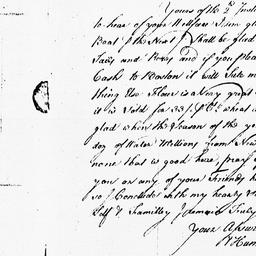 Yours of the 2d Inst
to hear of your Wellfare I am gl
Boat & the Next I Shall be glad
Taxes and Pray and if you Pleas
Cash to Boston it will Sute m
thing Else Flour is a Very great
it is Sold for 33/ P Ct wheat i
glad when the Season of the ye
doz of Water Millions from New
none that is good here, pray
you or any of your Friends h
so I Conclude with my hearty
Self & Familley I remain Truly
Your Assur